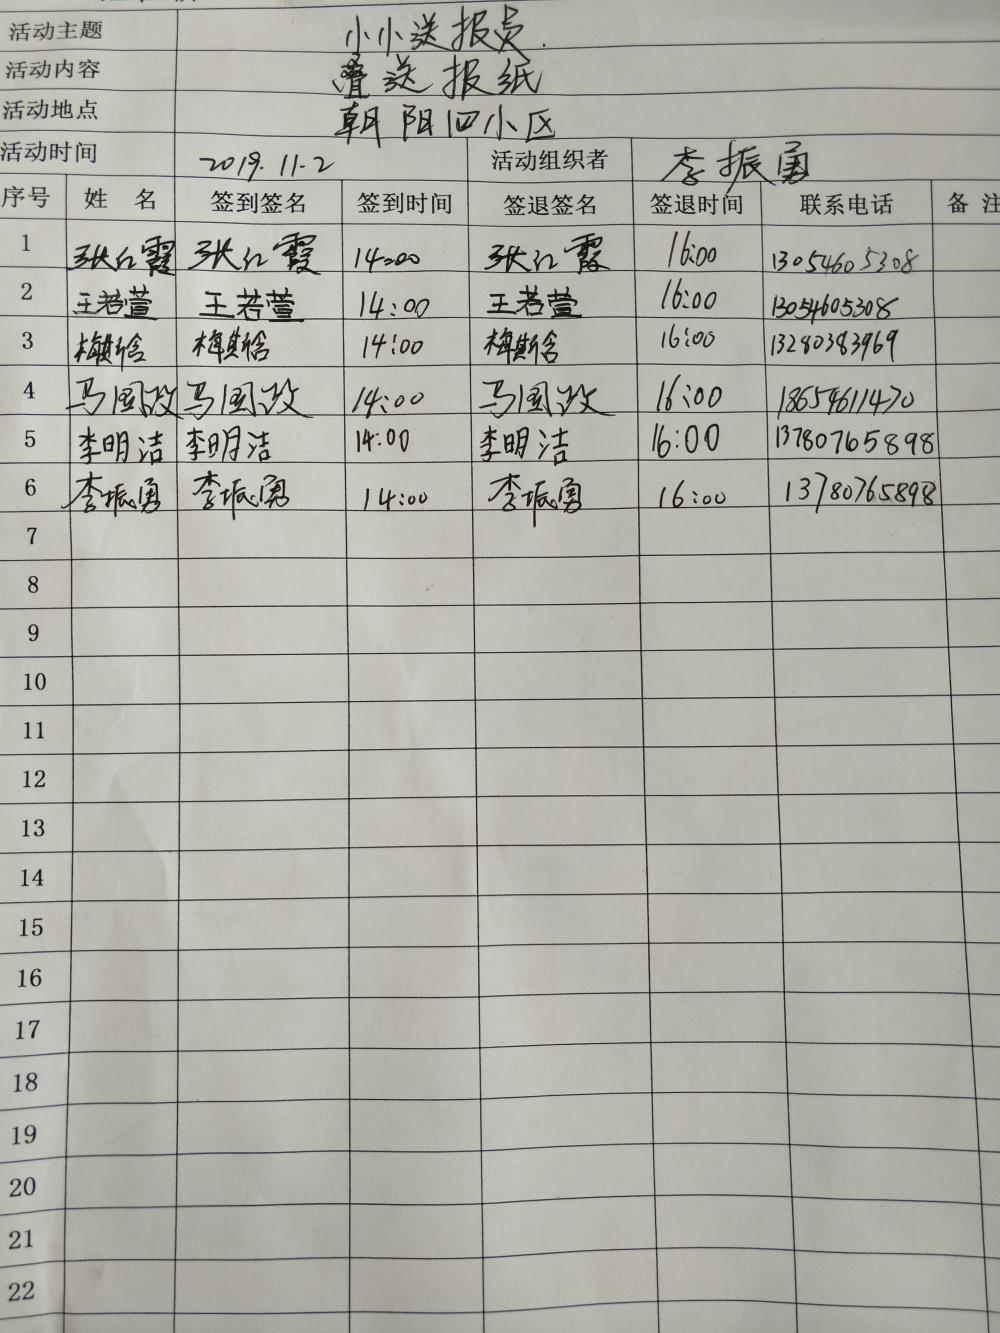 活动主题 小小送报员.
活动内容 叠送报纸
活动地点 朝阳四小区
活动时间 2019.11-2 活动组织者 李振勇
序号 姓 名 签到签名 签到时间 签退签名 签退时间 联系电话 备 注
1 张红霞 张红霞 14:00 张红霞 16:00 13054605308
2 王若萱 王若萱 14:00 王若萱 16:00 13054605308
3 梅斯晗 梅斯晗 14:00 梅斯晗 16:00 13280383969
4 马国政 马国政 14:00 马国政 16:00 18654611470
5 李明洁 李明洁 14:00 李明洁 16:00 13780765898
6 李振勇 李振勇 14:00 李振勇 16:00 13780765898
7
8
9
10
11
12
13
14
15
16
17
18
19
20
21
22